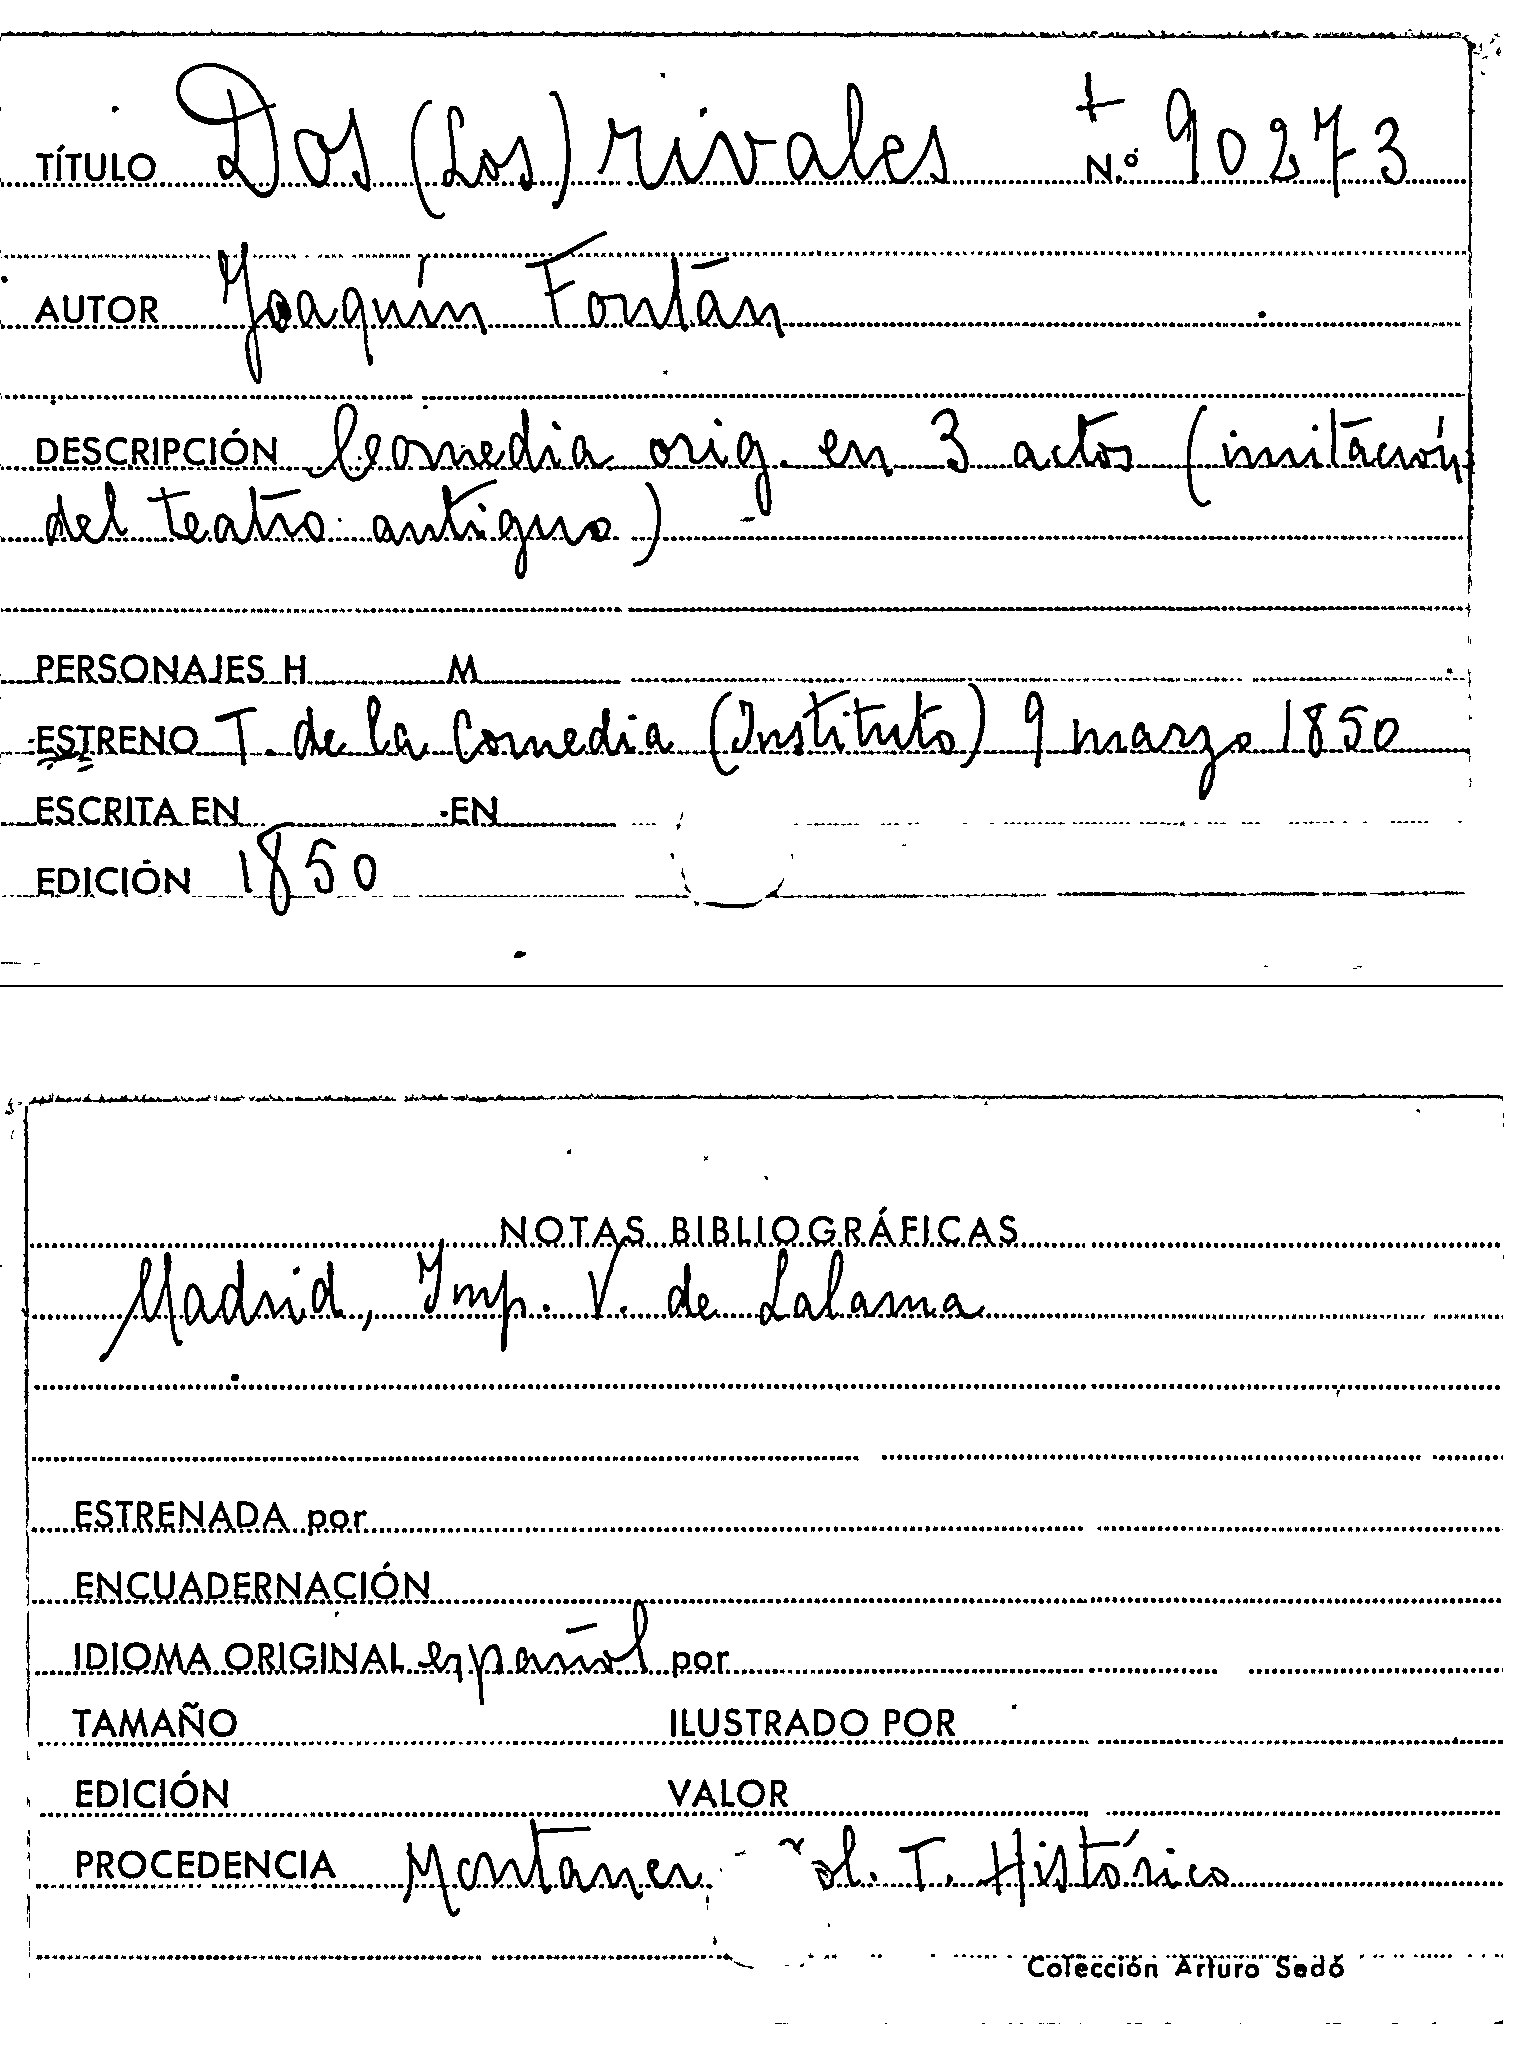 TÍTULO Dos (Los) rivales N.º 90273
AUTOR Joaquín Fontán
DESCRIPCIÓN Comedia orig. en 3 actos (imitación
del teatro antiguo)
PERSONAJES H M
ESTRENO T. de la Comedia (Instituto) 9 marzo 1850
ESCRITA EN EN
EDICIÓN 1850
NOTAS BIBLIOGRÁFICAS
Madrid, Imp. V. de Lalama
ESTRENADA por
ENCUADERNACIÓN
IDIOMA ORIGINAL español por
TAMAÑO ILUSTRADO POR
EDICIÓN VALOR
PROCEDENCIA Montaner Col. T. Histórico
Colección Arturo Sedó